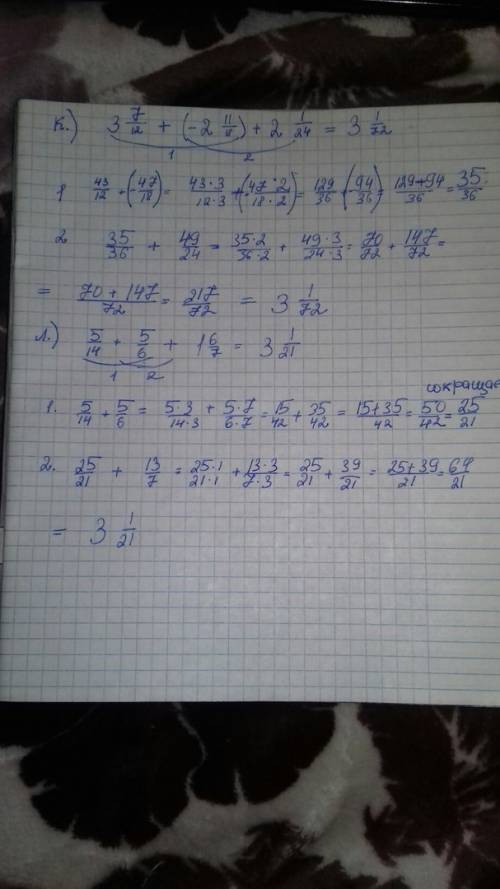 к.) 3 7/12 + (-2 11/18) + 2 1/24 = 3 1/72
1 2
1 43/12 + (-47/18) = 43·3/12·3 + (-47·2/18·2) = 129/36 + (-94/36) = 129+94/36 = 35/36
2. 35/36 + 49/24 = 35·2/36·2 + 49·3/24·3 = 70/72 + 147/72 =
= 70 + 147/72 = 217/72 = 3 1/72
л.) 5/14 + 5/6 + 1 6/7 = 3 1/21
1 2
сокращае
1. 5/14 + 5/6 = 5·3/14·3 + 5·7/6·7 = 15/42 + 35/42 = 15+35/42 = 50/42 = 25/21
2. 25/21 + 13/7 = 25·1/21·1 + 13·3/7·3 = 25/21 + 39/21 = 25+39/21 = 64/21
= 3 1/21